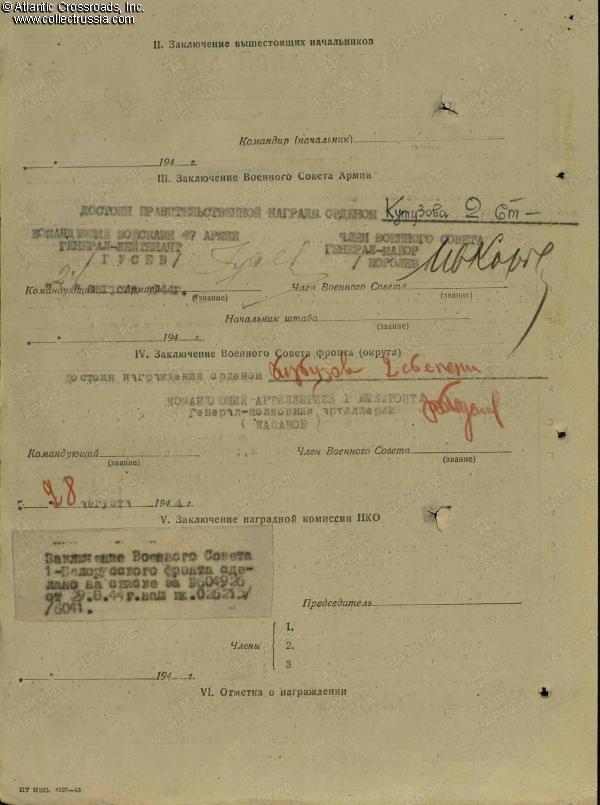 © Atlantic Crossroads, Inc.
www.collectrussia.com
II. Заключение вышестоящих начальников
Командир (начальник)
" " 194 г.
III. Заключение Военного Совета Армии
ДОСТОИН ПРАВИТЕЛЬСТВЕННОЙ НАГРАДЫ ОРДЕНОМ Кутузова 2 ст-
КОМАНДУЮЩИЙ ВОЙСКАМИ 47 АРМИИ ЧЛЕН ВОЕННОГО СОВЕТА
ГЕНЕРАЛ-ЛЕЙТЕНАНТ ГЕНЕРАЛ-МАЙОР
/ГУСЕВ/ /КОРОЛЕВ/
Командующий Армией Член Военного Совета
(звание) (звание)
августа 1944г.
Начальник штаба
(звание)
" " 194 г.
IV. Заключение Военного Совета фронта (округа)
достоин награждения орденом Кутузова 2 степени
КОМАНДУЮЩИЙ АРТИЛЛЕРИЕЙ 1 БЕЛФРОНТА
Генерал-полковник артиллерии
(КАЗАКОВ)
Командующий Член Военного Совета
(звание) (звание)
" 28 августа 1944 г.
V. Заключение наградной комиссии НКО
Заключение Военного Совета
1-Белорусского фронта сде-
лано на списке за №604926
от 29.8.44г.наш вх.
/6041.
Председатель
Члены
1.
2.
3.
" " 194 г.
VI. Отметка о награждении
ЦТ НКО. 4227—43